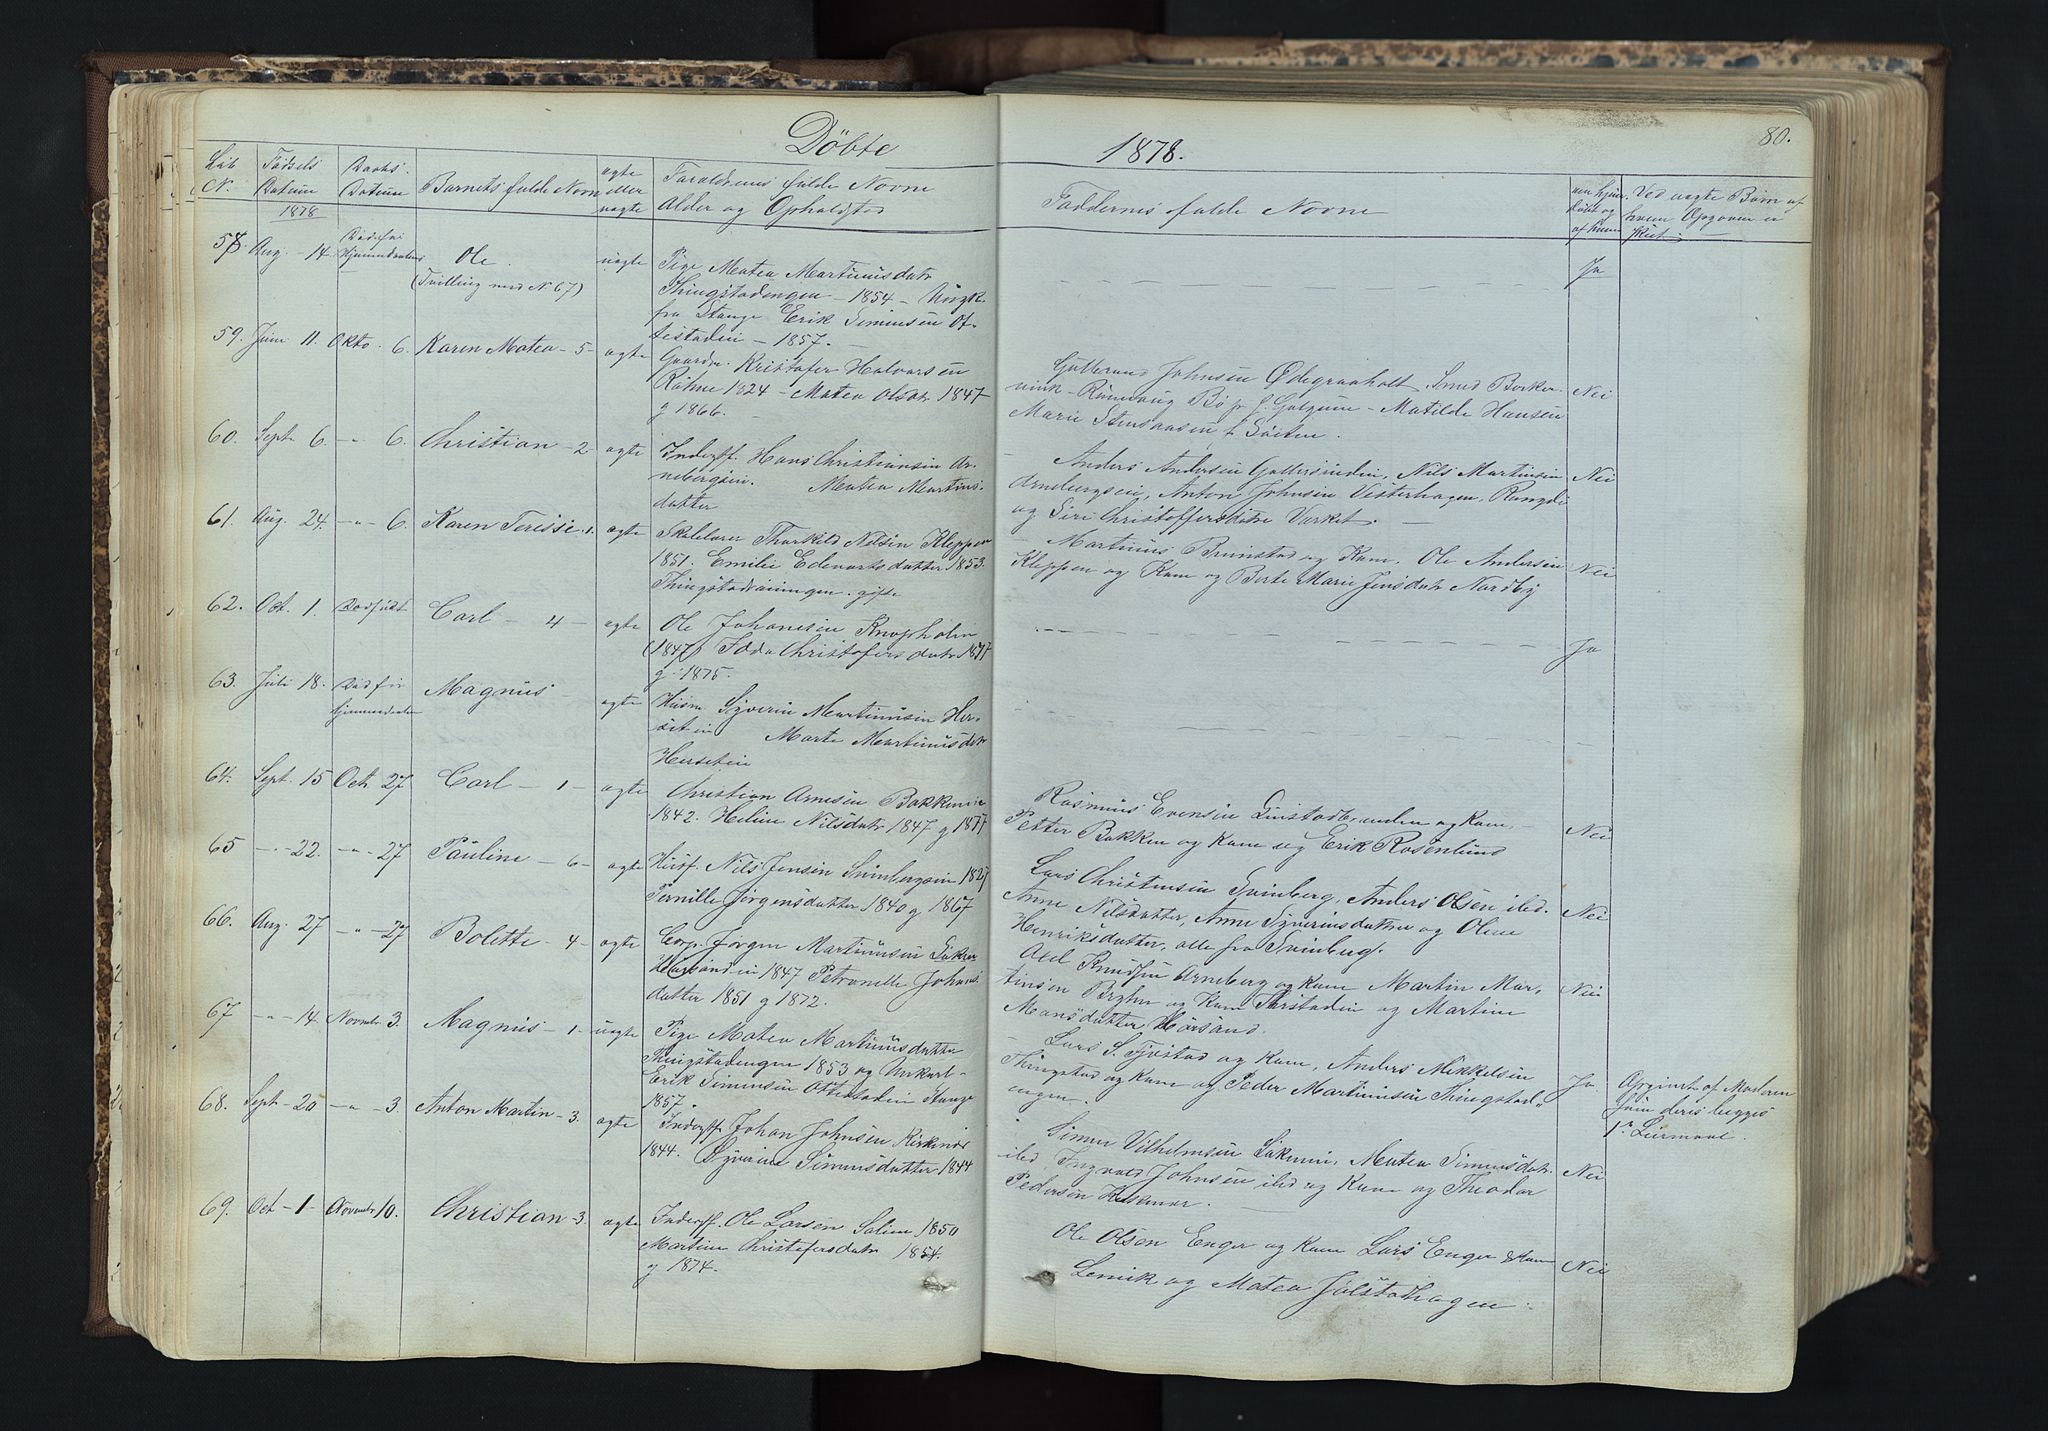 Döbte
1878.
80.
Löb N.
Födsels Datum
Daabs. Datum
Barnets fulde Navn
ægte eller uægte
Forældrenes fulde Navne
Alder og Opholdsted
Faddernes fulde Navne
om hjemmedöbt og af hvem
Ved uægte Börn af hvem Opgaven er skeet
1878
58 Aug. 14. Död før Hjemmedaaben Ole. uægte Pige Matea Martinusdatr
(Tvilling med N 67) Thingstadengen - 1854 - Ungk.
fra Stange Erik Simensen Ot-
testaden - 1857. Ja
59. Juni 11. Okto. 6. Karen Matea - 5 - ægte Gaardm. Kristofer Halvorsen
Röhne 1824 - Matea Olsdtr 1847
g 1866.
Gulbrand Johnsen Ødegraaholt, Smed Berker
vink - Rönnaug Bö p. f. Galgum - Matilde Hansen Nei
Marie Stenhansen f. Söiten.
60. Sept. 6. - " - 6. Christian - 2 - ægte Inderst. Hans Christiansen Ar-
nebergeien. Matea Martins-
datter
Anders Andersen Gubbersinden, Nils Martinsen Nei
Arnebergeien, Anton Johnsen Vesterhagen, Rangdi
og Siri Christoffersdatre Varket.
61. Aug. 24. - " - 6. Karen Terisse. 1. ægte Skolelærer Thorkild Nilsen Kleppen
1851. Emilie Edevartsdatter 1853.
Thingstadeiningen. gifte
Martinus Brunstad og Kone. Ole Andersen
Kleppen og Kone og Berte Marie Jensdatr Nordby Nei
62. Oct. 1. Dødfödt Carl - 4 - ægte Ole Johanesen Knapholen
(1847) Ida Christofersdatr 1847
g. 1875. Ja
63. Juli 18. Död før hjemmedaaben Magnus - ægte Husm. Syverin Martinusen Her-
seten Marte Martinusdatr
Herseteien
64. Sept. 15 Oct. 27 Carl - 1 - ægte Christian Arnesen Bakkeneie
1842. Heline Nilsdatr 1847 g 1877
Rasmus Evensen Linstadbrenden og Kone, Nei
Petter Bakken og Kone og Erik Rosenlund
65 - " - 22. - " - 27 Pauline - 6 - ægte Husf. Nils Jensen Svinbergeie 1827
Pernille Jörgensdatter 1840 g 1867
Lars Christensen Svinberg, Anders Olsen ibd. Nei
Anne Nilsdatter, Anne Syverinsdatter og Oline
Henriksdatter, alle fra Svinberg.
66. Aug. 27 - " - 27 Bolette - 4 - ægte Corp. Jörgen Martinusen
1847 Petronelle Johans
datter 1851 g 1872.
Axel Knudsen Arneberg og Kone Martin Mar, Nei
tinsen Bergher og Kone Torstadeie og Martine
Mansdatter Hörsand.
67 - " - 14 Novembr 3. Magnus - 1 - uægte Pige Matea Martinusdatter
Thingstadengen 1853 og Unkarl
Erik Simensen Ottestaden Stange
1857.
Lars S. Tjöstad og Kone, Anders Mikkelsen
Thingstad og Kone og Peder Martinusen Thingstad" Ja
engen.
Opgivet af Moderen
hun deres begges
1te Leiermaal.
68. Sept - 20 - " - 3. Anton Martin - 3. ægte Inderst. Johan Johnsen Kirkenær
1844. Syverine Simensdatter 1844
Simen Vilhelmsen Lökeneie, Matea Simensdatr.
ibd, Ingvald Johnsen ibd og Kone og Theodor Nei
Pedersen Hesknær.
69. Oct - 1 - Novembr 10. Christian - 3. ægte Inderst. Ole Larsen Salien 1850
Martine Christofersdatr 1854.
g 1874.
Ole Olsen Enger og Kone Lars Enger & Kone Nei
Lenvik og Matea Jölstadhagen.